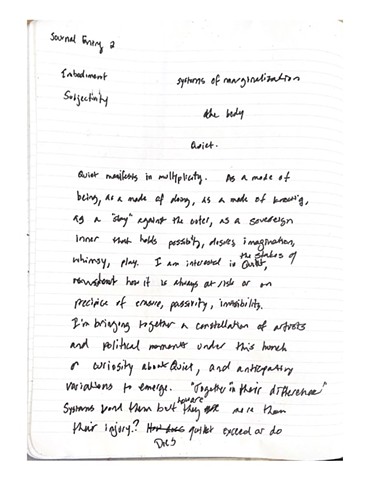 Journal Entry 2
Embodiment systems of marginalization
Subjectivity
the body
Quiet.
Quiet manifests in multiplicity. As a mode of
being, as a mode of doing, as a mode of knowing,
as a "stay" against the outer, as a sovereign
inner that holds possibility, desires, imagination,
whimsy, play. I am interested in the status of Quiet,
how it is always at risk or on
precipice of erasure, passivity, invisibility.
I'm bringing together a constellation of artists
and political moments under this hunch
or curiosity about Quiet, and anticipating
variations to emerge. "Together in their difference"
Systems them but they are more than
their injury? Does quiet exceed or do